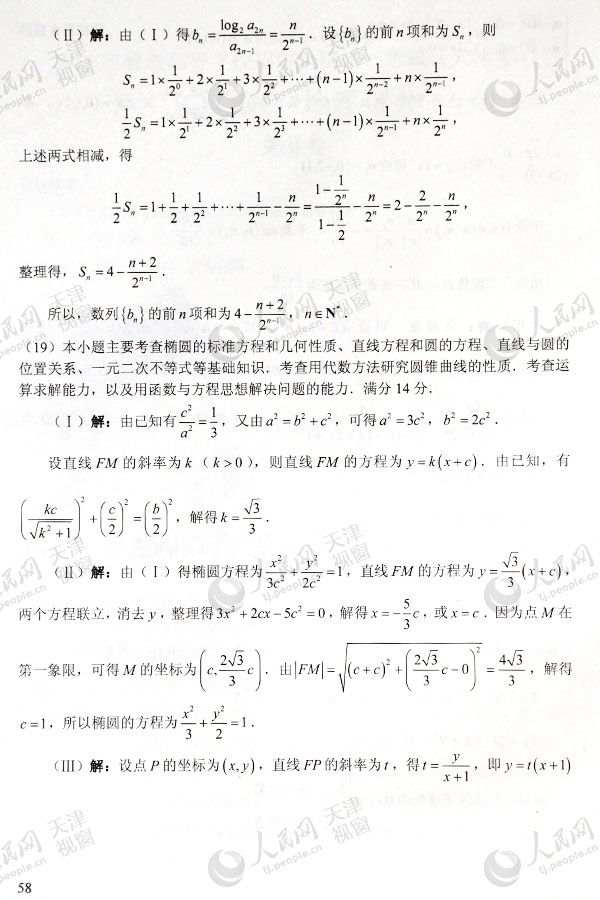 (Ⅱ)解:由(Ⅰ)得 b_n = log_2 a_{2n} / a_{2n-1} = n / 2^{n-1}. 设{b_n}的前n项和为S_n,则
S_n = 1×1/2^0 + 2×1/2^1 + 3×1/2^2 + ⋯ + (n-1)×1/2^{n-2} + n×1/2^{n-1},
1/2 S_n = 1×1/2^1 + 2×1/2^2 + 3×1/2^3 + ⋯ + (n-1)×1/2^{n-1} + n×1/2^n,
上述两式相减,得
1/2 S_n = 1 + 1/2 + 1/2^2 + ⋯ + 1/2^{n-1} - n/2^n = (1 - 1/2^n)/(1 - 1/2) - n/2^n = 2 - 2/2^n - n/2^n,
整理得,S_n = 4 - (n+2)/2^{n-1}.
所以,数列{b_n}的前n项和为 4 - (n+2)/2^{n-1},n∈N*.
(19)本小题主要考查椭圆的标准方程和几何性质、直线方程和圆的方程、直线与圆的
位置关系、一元二次不等式等基础知识.考查用代数方法研究圆锥曲线的性质.考查运
算求解能力,以及用函数与方程思想解决问题的能力.满分14分.
(Ⅰ)解:由已知有 c²/a² = 1/3,又由a² = b² + c²,可得a² = 3c²,b² = 2c².
设直线FM的斜率为k(k>0),则直线FM的方程为y = k(x+c).由已知,有
(kc/√(k²+1))² + (c/2)² = (b/2)²,解得k = √3/3.
(Ⅱ)解:由(Ⅰ)得椭圆方程为 x²/3c² + y²/2c² = 1,直线FM的方程为 y = √3/3 (x+c),
两个方程联立,消去y,整理得3x² + 2cx - 5c² = 0,解得x = -5/3 c,或x = c.因为点M在
第一象限,可得M的坐标为(c, 2√3/3 c).由|FM| = √((c+c)² + (2√3/3 c - 0)²) = 4√3/3,解得
c = 1,所以椭圆的方程为 x²/3 + y²/2 = 1.
(Ⅲ)解:设点P的坐标为(x, y),直线FP的斜率为t,得t = y/(x+1),即y = t(x+1)
58
人民网 天津视窗
tj.people.cn